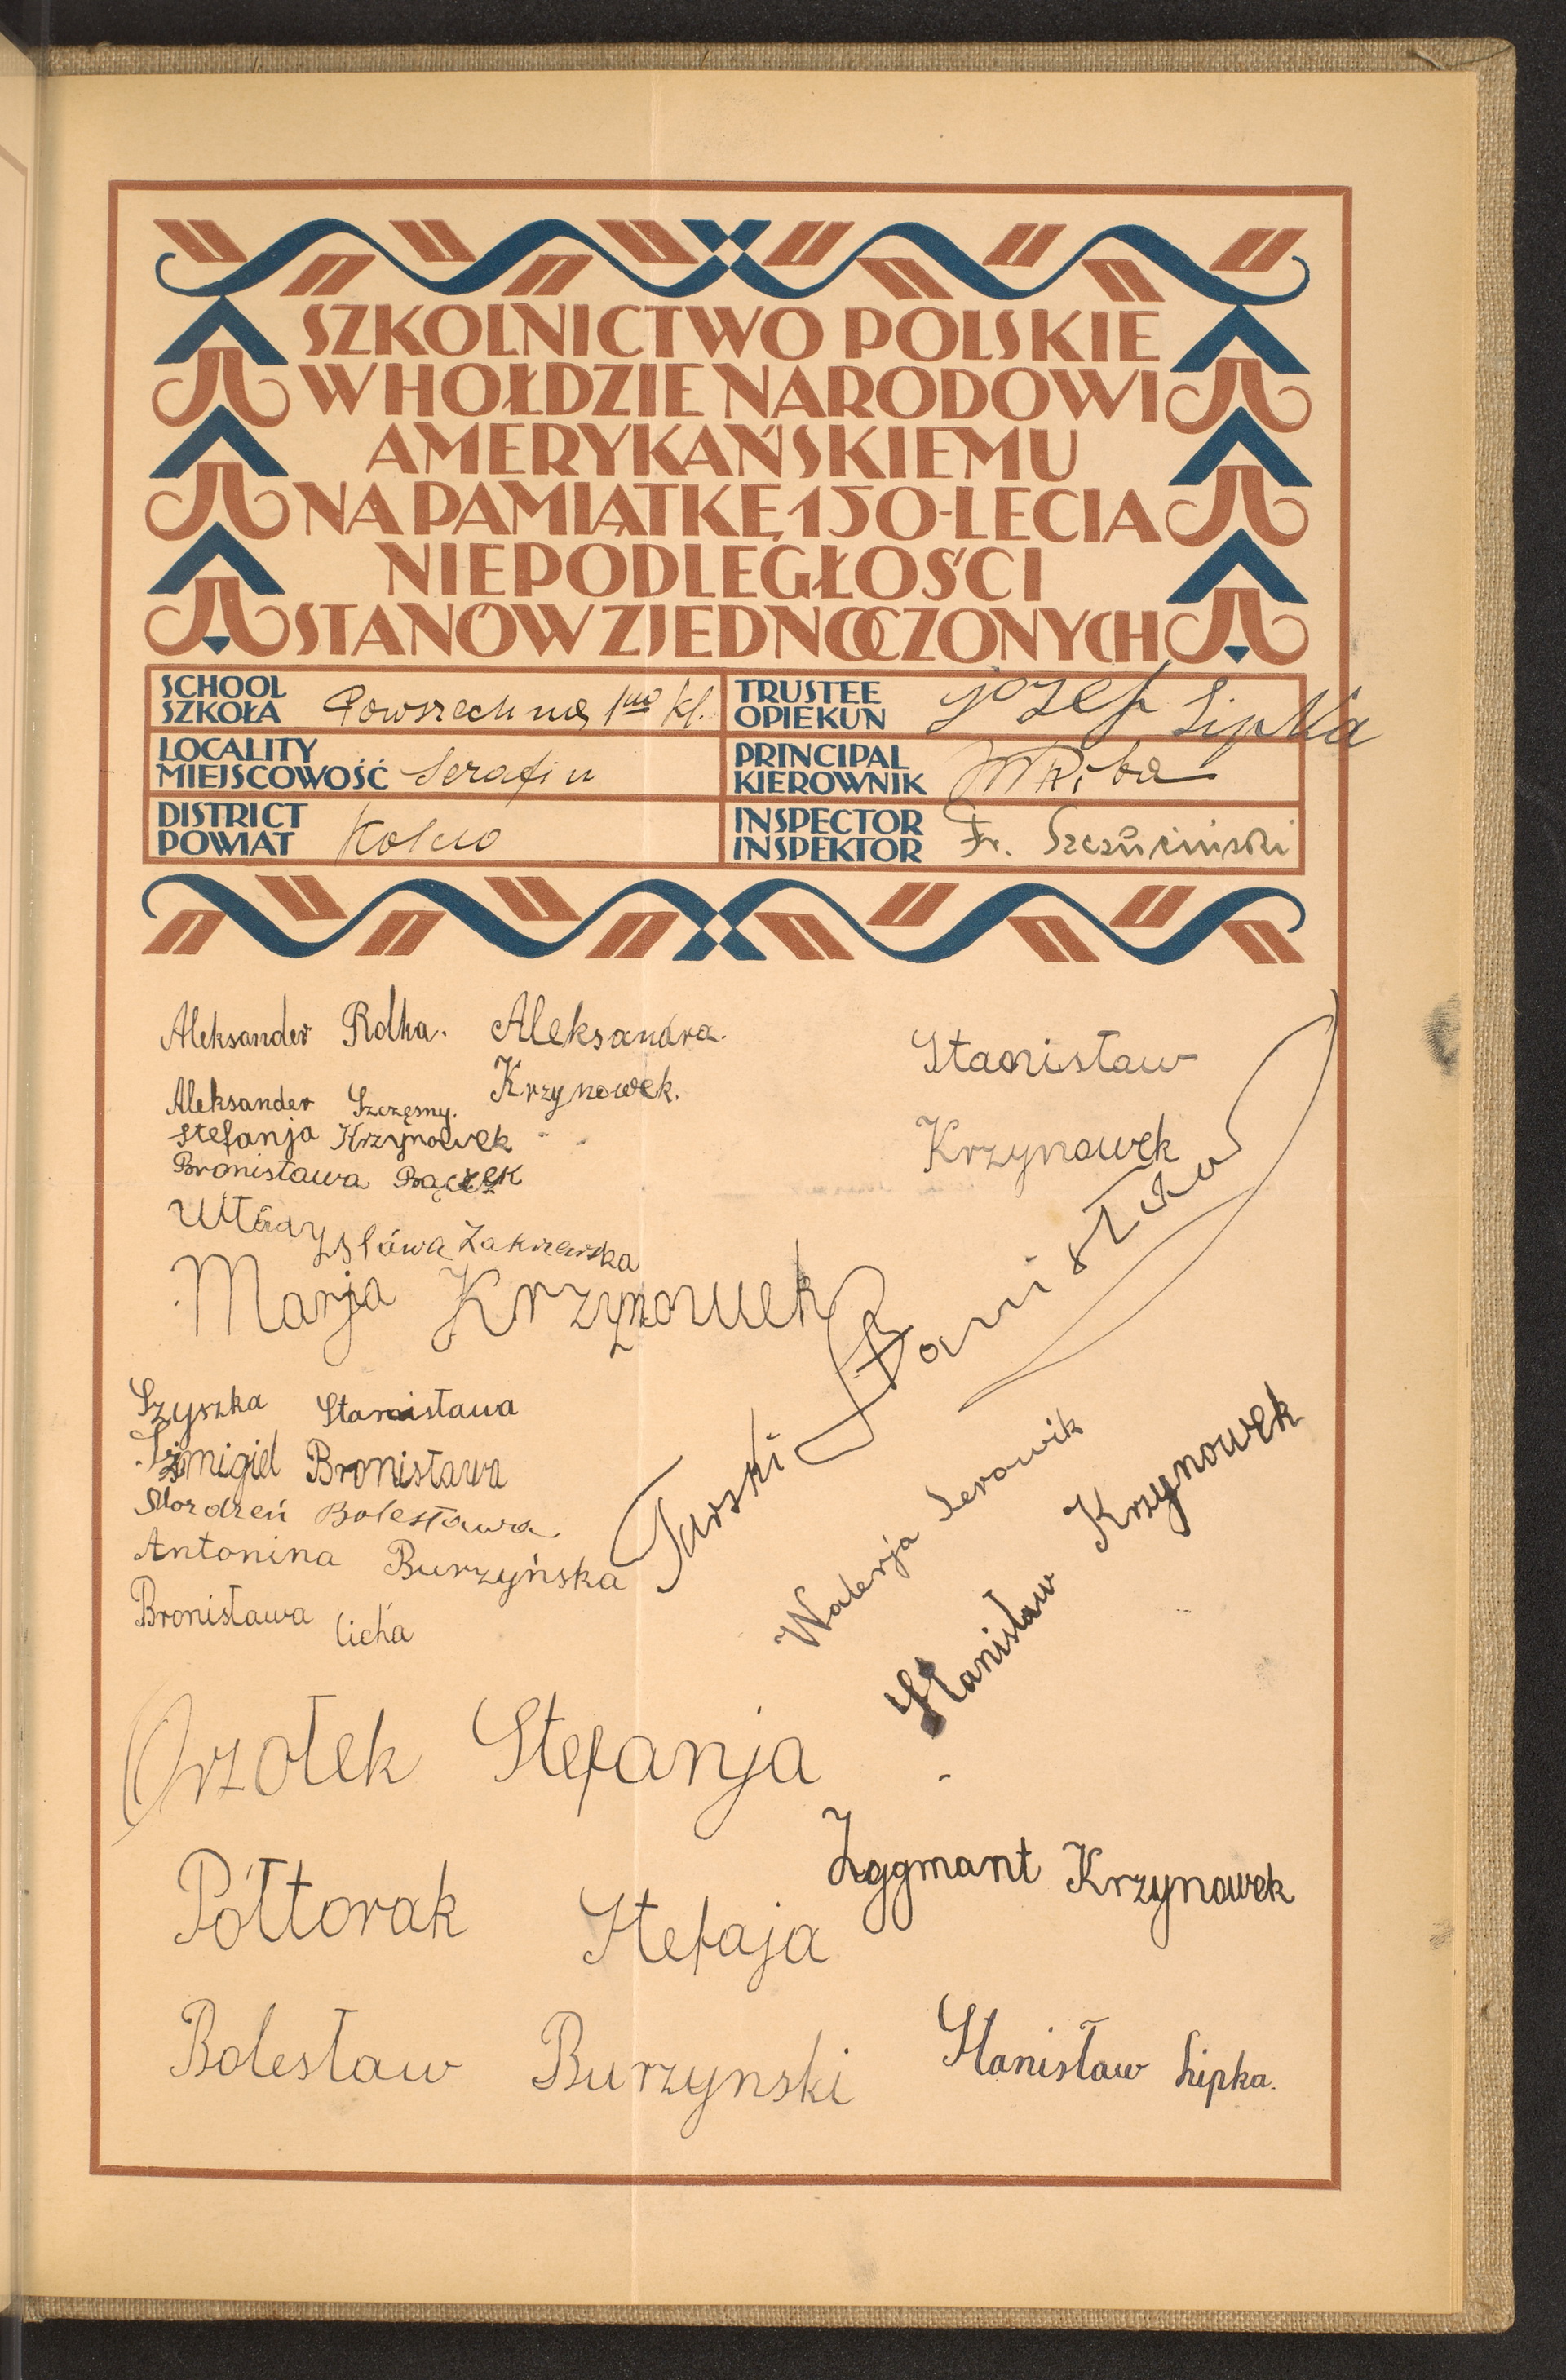 SZKOLNICTWO POLSKIE
W HOŁDZIE NARODOWI
AMERYKAŃSKIEMU
NA PAMIĄTKĘ 150-LECIA
NIEPODLEGŁOŚCI
STANÓW ZJEDNOCZONYCH
SCHOOL
SZKOŁA Powszechna 1no kl.
TRUSTEE
OPIEKUN Józef Lipka
LOCALITY
MIEJSCOWOŚĆ Serafin
PRINCIPAL
KIEROWNIK
DISTRICT
POWIAT Kolno
INSPECTOR
INSPEKTOR Fr.
Aleksander Rolka.
Aleksandra.
Krzynowek.
Stanisław
Krzynowek
Aleksander Szczęsny.
Stefanja Krzynowek
Bronisława Bączek
Władysława Zakrzewska
Marja Krzynowek
Tarski Stanisław
Szyszka Stanisława
Szmigiel Bronisława
Mordzeń Bolesława
Antonina Burzyńska
Bronisława Cicha
Walerja Serowik
Stanisław Krzynowek
Orzołek Stefanja
Zggmant Krzynowek
Półtorak Stefaja
Bolesław Burzynski
Stanisław Lipka.